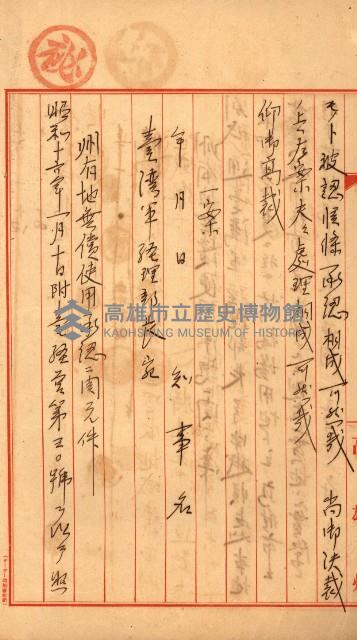 モト被認候條承認相成可然哉 尚御決裁
ノ上左案夫々處理相成可然哉
仰御高裁
一案
年月日 知事名
臺灣軍經理部長宛
州有地無償使用承認ニ関スル件
昭和十六年一月十日附臺經營第三〇號ヲ以テ照
高雄州
高雄市立歷史博物館
KAOHSIUNG MUSEUM OF HISTORY